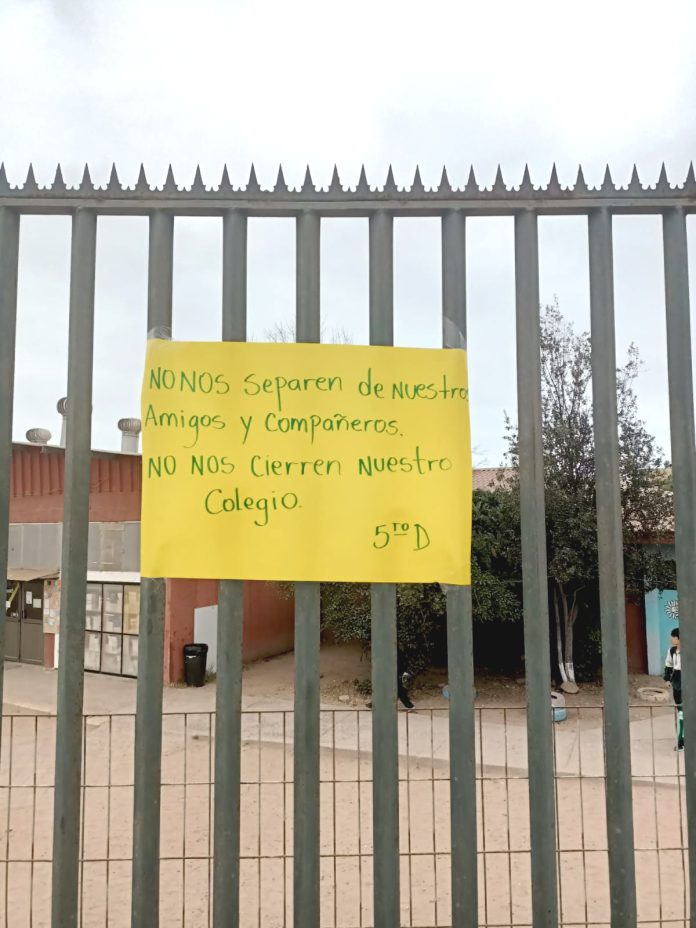 NO NOS Separen de Nuestros
Amigos y Compañeros.
NO NOS Cierren Nuestro
Colegio.
5ro D